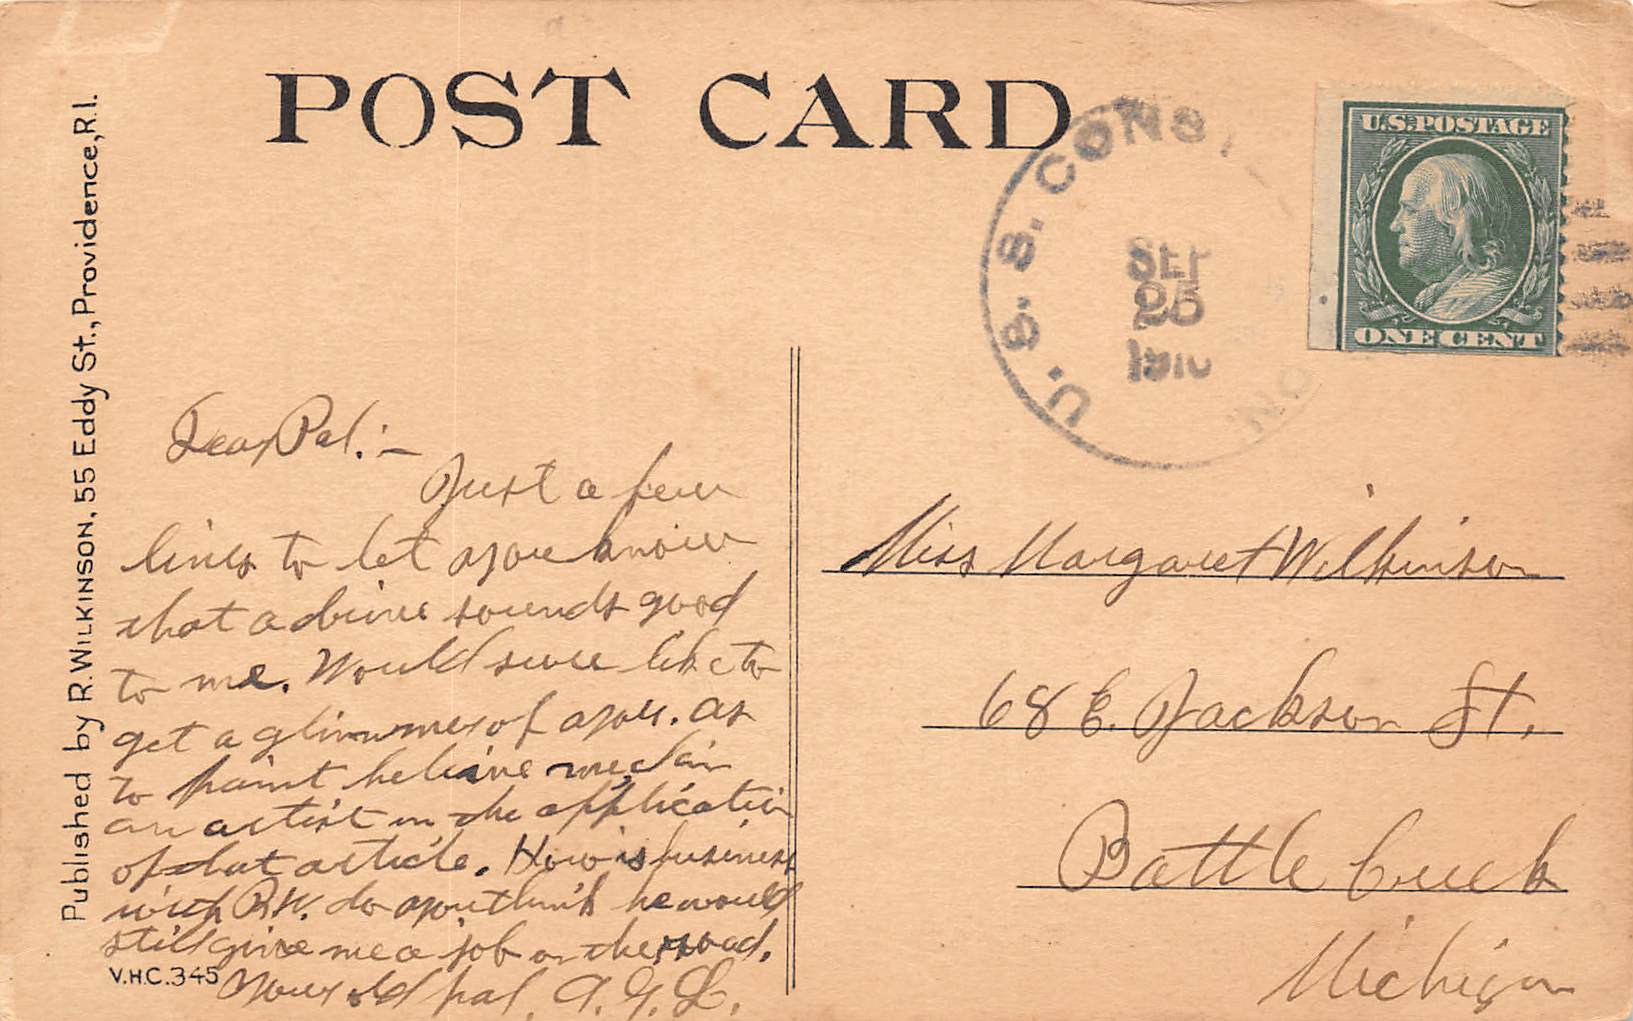 POST CARD
U.S.POSTAGE
ONE CENT
U. S. S. CONS
SEP
25
191
ON.
Published by R. WILKINSON, 55 Eddy St., Providence, R.I.
Dear Pal:—
Just a few
lines to let you know
that a drive sounds good
to me. Would sure like to
get a glimmer of you. as
to paint believe me I'm
an artist in the application
of that article. How is business
with R.W. do you think he would
still give me a job on the road.
Your old pal, A.G.L.
V.H.C. 345
Miss Margaret Wilkinson
68 E. Jackson St.
Battle Creek
Michigan